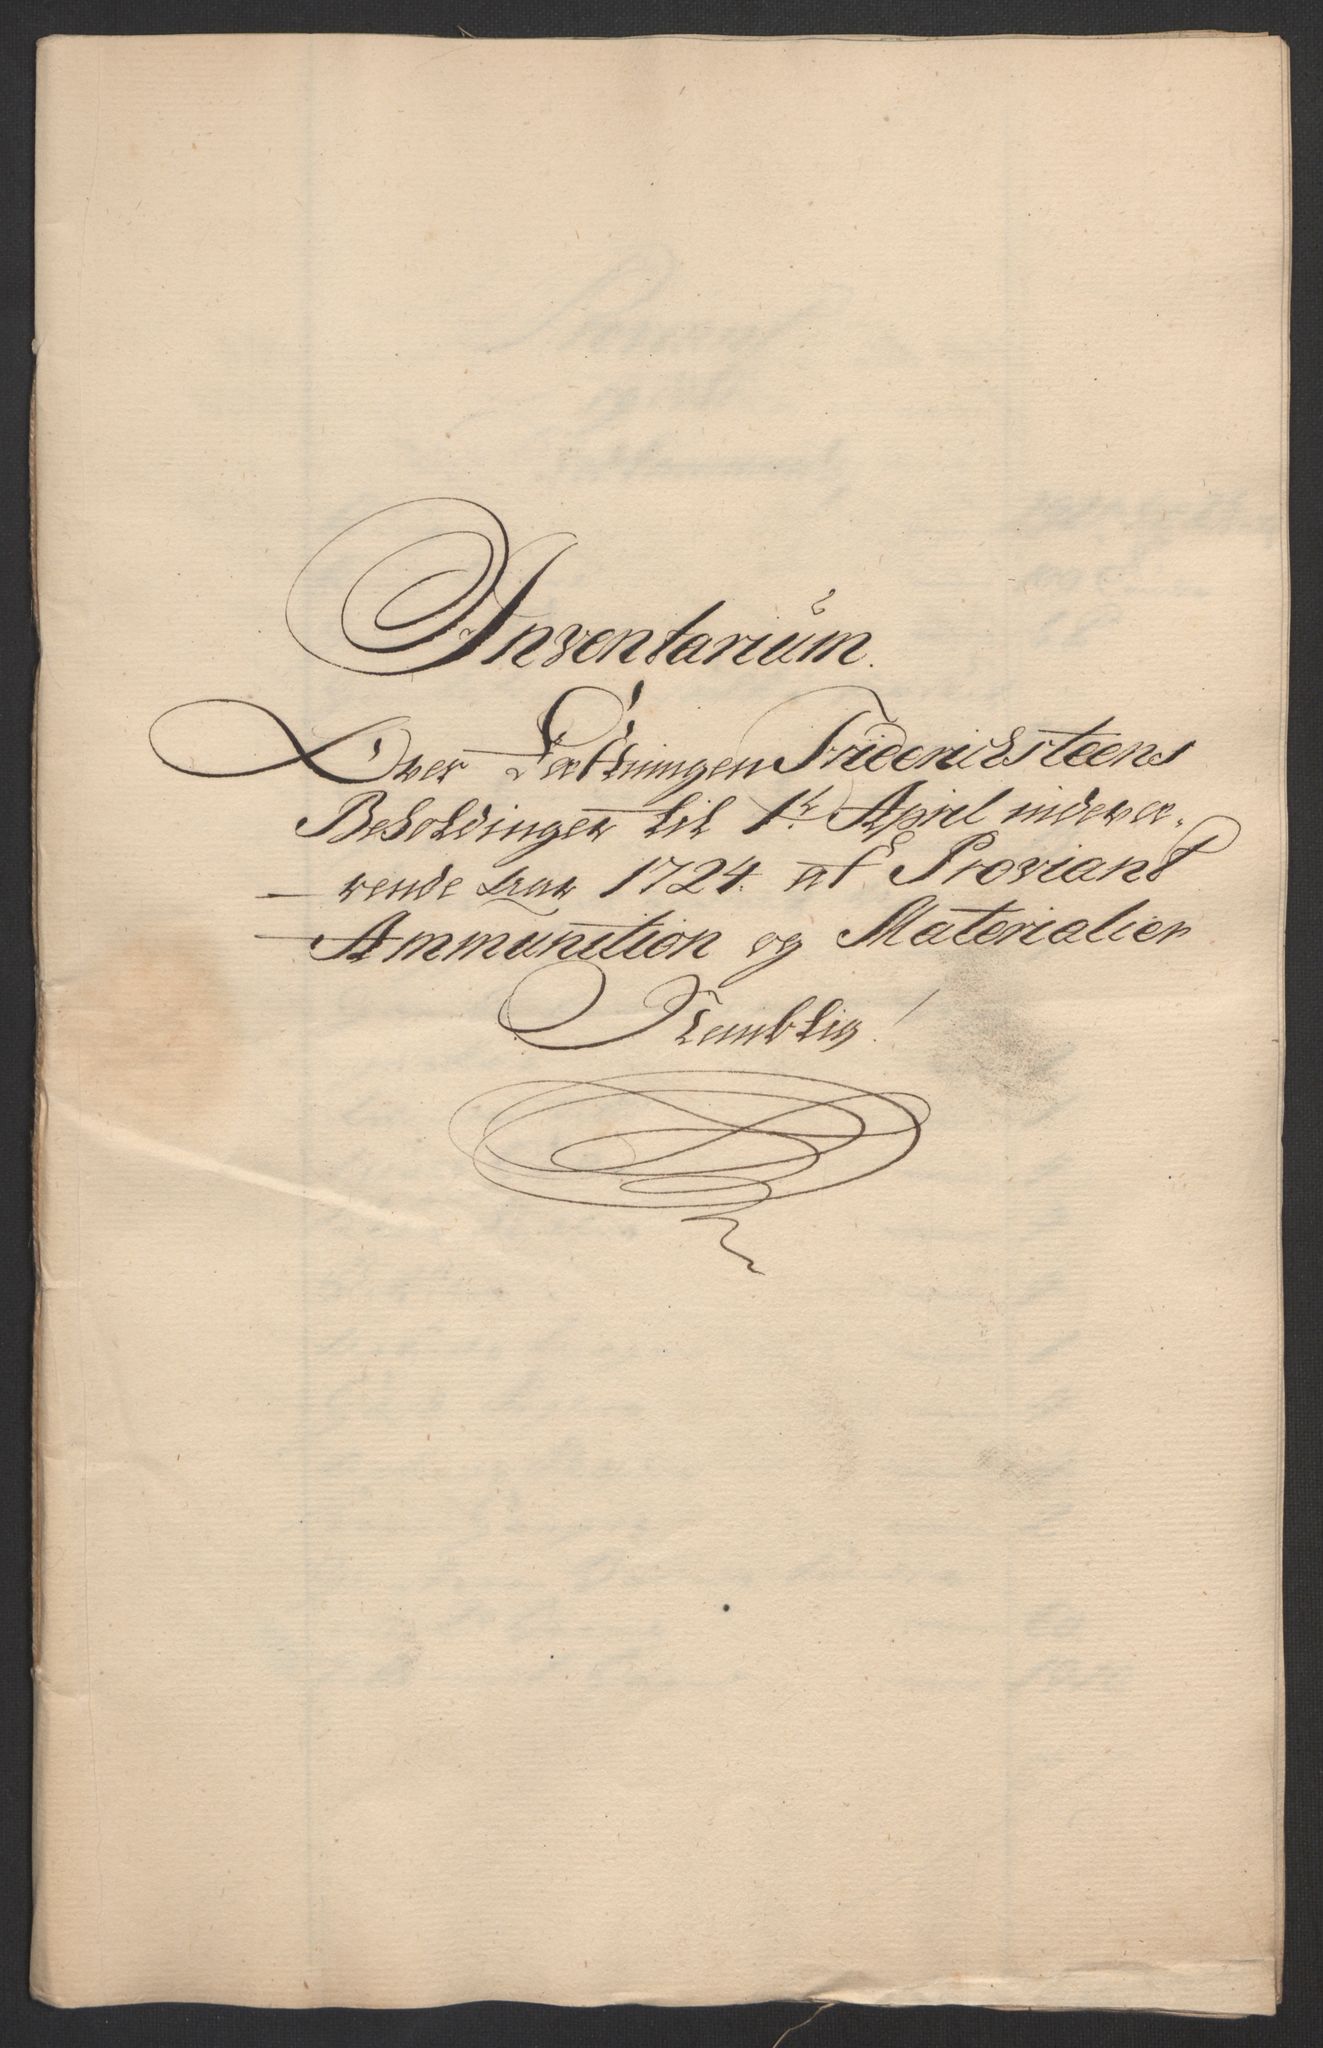 Inventarium.
Over Festningen Fridericksteens
Beholdinger til 1te April indevæ-
rende aar 1724. af Proviant
Ammunition og Materialier
Nemblig!